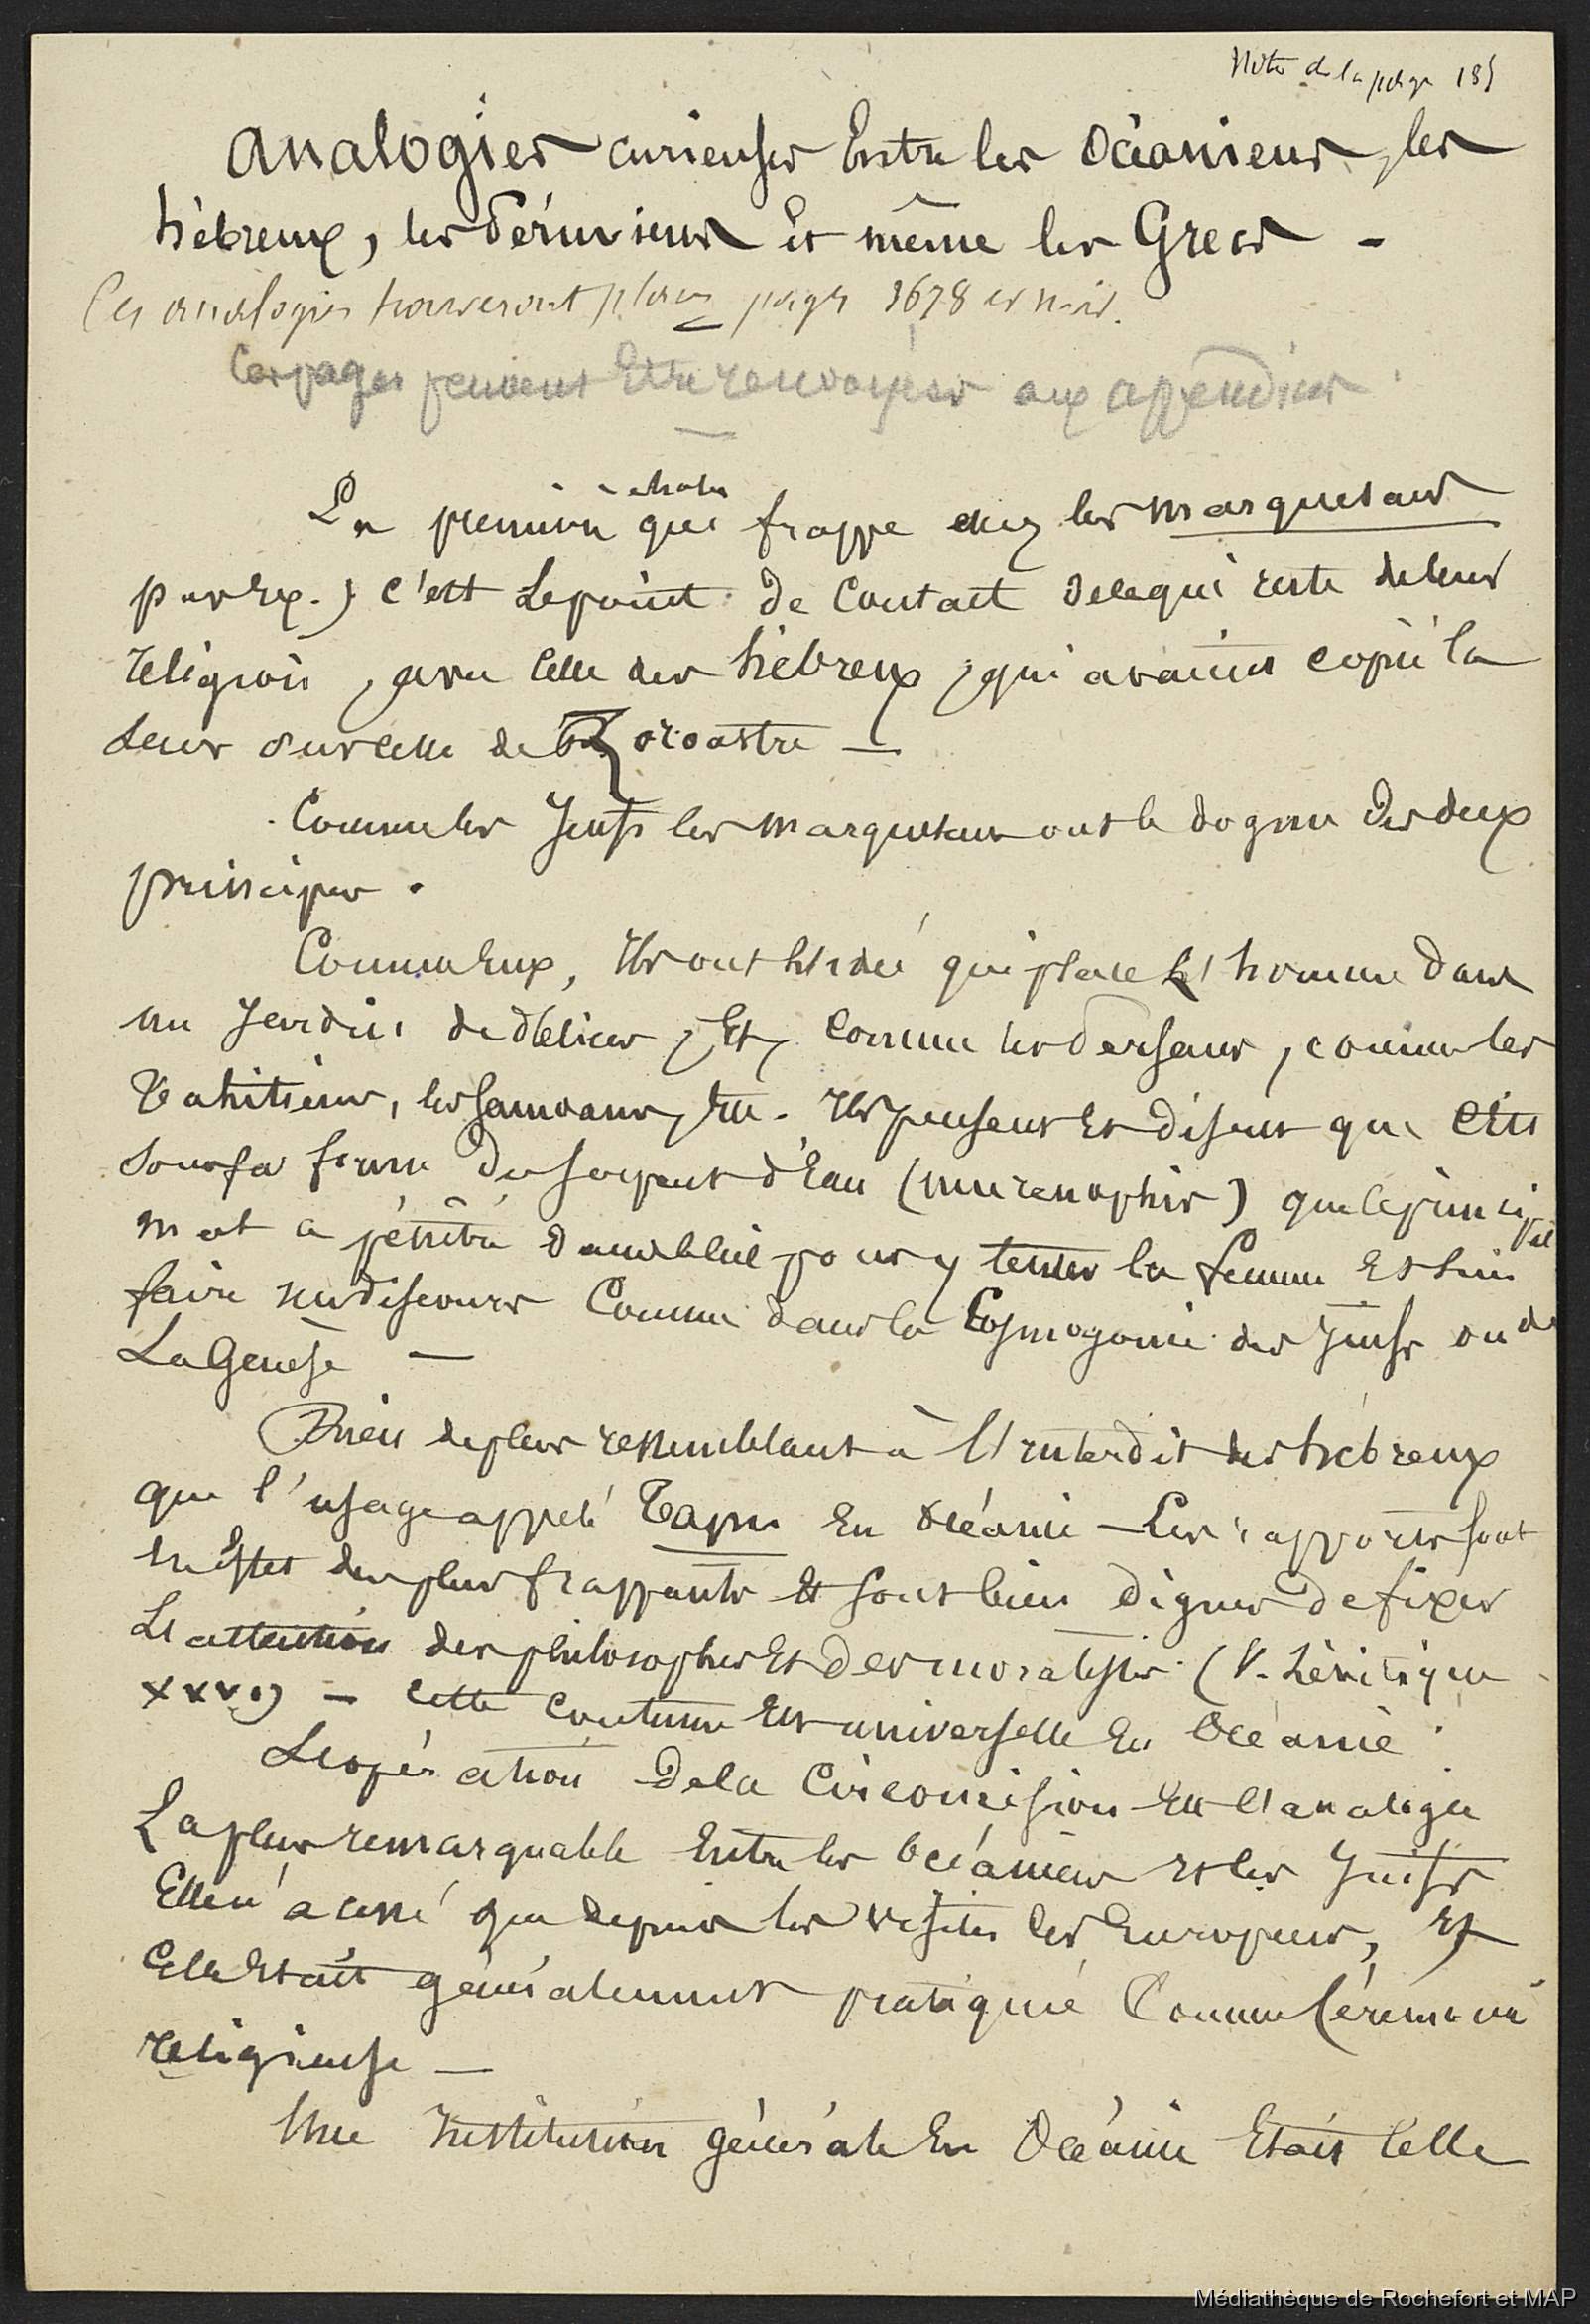 Note de la page 185
Analogies curieuses Entre les Océaniens, les
hébreux, les Péruviens Et même les Grecs -
Ces analogies trouveront place page 1678 et suiv.
Ces pages peuvent Etre renvoyées aux appendices
La première chose qui frappe chez les marquesans
par ex.) c'est Le point de Contact de ce qui reste de leur
religion, avec Celle des hébreux, qui avaient copié la
Leur sur celle de Zoroastre —
Comme les Juifs les marquesans ont le dogme Des deux
principes.
Comme Eux, Ils ont l'idée qui place L'homme dans
un Jardin de délices, Et, Comme les Persans, comme les
Tahitiens, les Samoans, Etc. Ils pensent Et disent que C'Est
Sous la forme Du serpent d'Eau (murenophis) que le principe
mal a pénétré dans le lieu pour y tenter la femme Et lui
faire un discours Comme dans la Cosmogonie des Juifs ou de
La Genèse —
Rien de plus ressemblant à l'Interdit des hébreux
que l'usage appelé Tapu En Océanie — Les rapports sont
En Effet des plus frappants Et sont bien Dignes De fixer
L'attention des philosophes Et Des moralistes (V. Lévitique
XXVI) — Cette Coutume Est universelle En Océanie.
L'opération De la Circoncision Est l'analogie
La plus remarquable Entre les Océaniens Et les Juifs
Elle n'a cessé que depuis les visites des Européens, Et
Elle Etait généralement pratiquée Comme Cérémonie
religieuse —
Une Institution générale En Océanie Etait Celle
Médiathèque de Rochefort et MAP